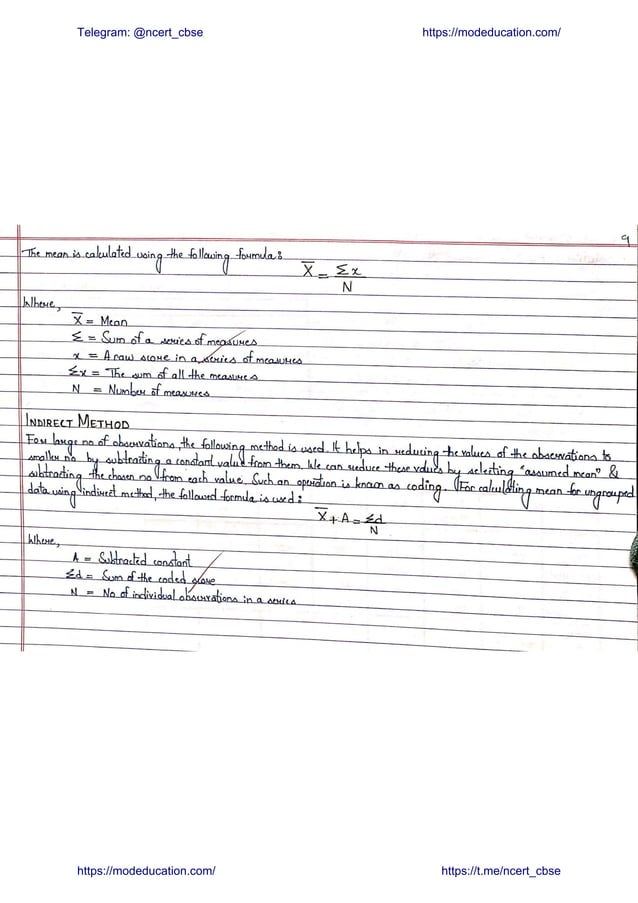 Telegram: @ncert_cbse https://modeducation.com/
9
The mean is calculated using the following formula:
X̅ = Σx
N
Where,
X̅ = Mean
Σ = Sum of a series of measures
x = A raw score in a series of measures
Σx = The sum of all the measures
N = Number of measures
INDIRECT METHOD
For large no of observations, the following method is used. It helps in reducing the values of the observations to
smaller no by subtracting a constant value from them. We can reduce these values by selecting "assumed mean" &
subtracting the chosen no from each value. Such an operation is known as coding. For calculating mean for ungrouped
data using indirect method, the followed formula is used:
X̅ + A = Σd
N
Where,
A = Subtracted constant
Σd = Sum of the coded score
N = No of individual observations in a series
https://modeducation.com/ https://t.me/ncert_cbse